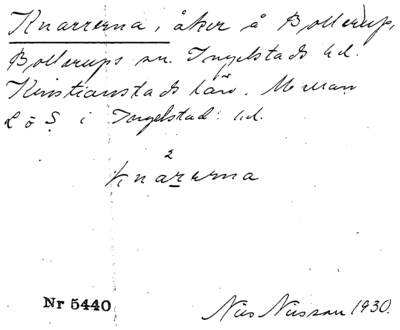 Knarrerna, åker å Bollerup,
Bollerups sn. Ingelstads hd.
Kristianstads län. Mellan
L o S. i Ingelstad hd.
2
knarerna
Nr 5440 Nils Nilsson 1930.